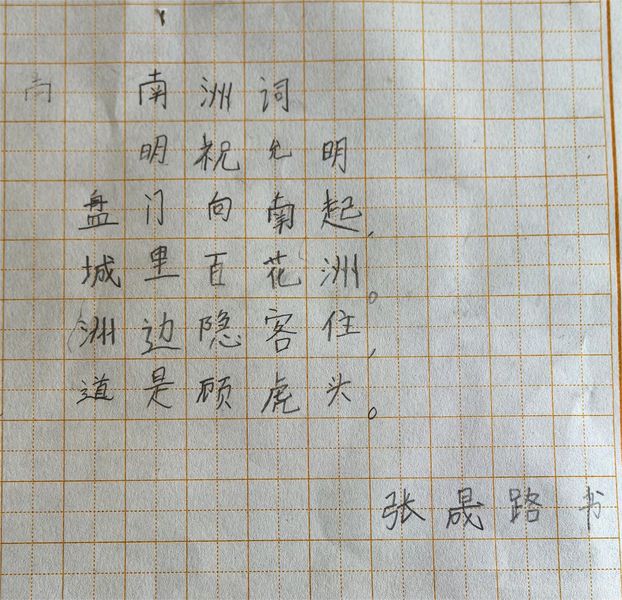 南 南洲词
明祝允明
盘门向南起,
城里百花洲。
洲边隐客住,
道是顾虎头。
张晟路书